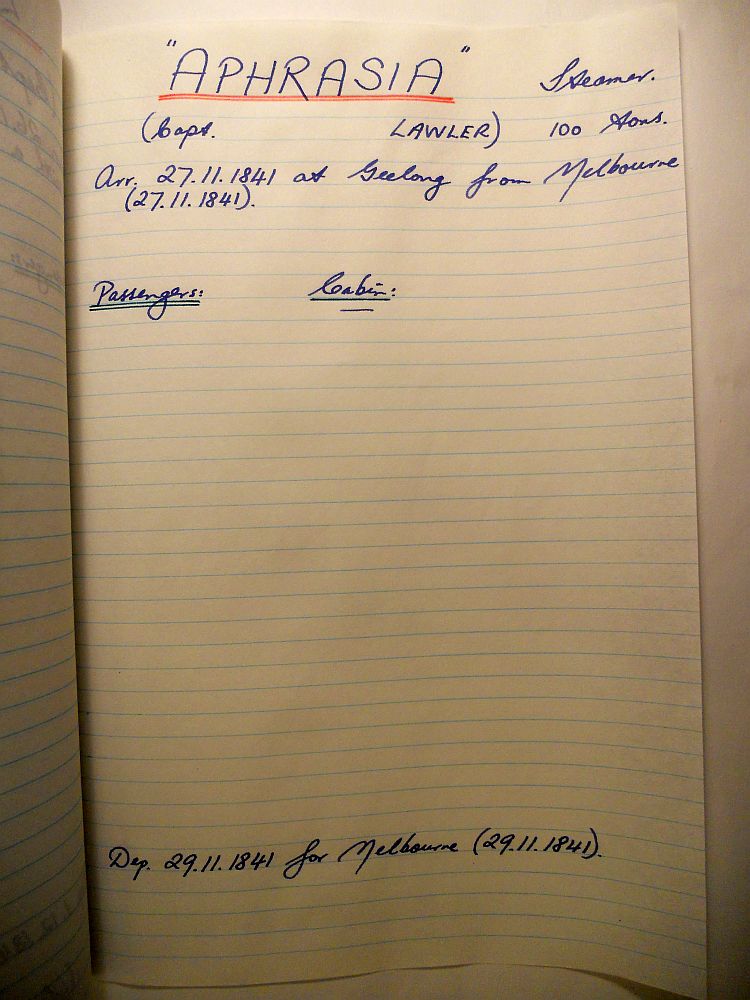 "APHRASIA" Steamer.
(Capt. LAWLER) 100 tons.
Arr. 27.11.1841 at Geelong from Melbourne
(27.11.1841).
Passengers: Cabin:
Dep. 29.11.1841 for Melbourne (29.11.1841).